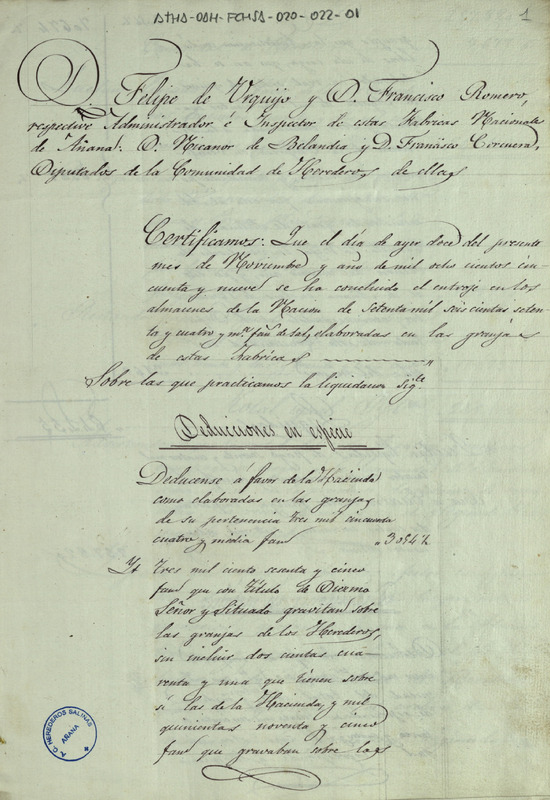 ATHA-DAH-FCHSA-020-022-01
1
D. Felipe de Urquijo y D. Francisco Romero,
respectivo Administrador é Inspector de estas Fabricas Nacionales
de Añana: D. Nicanor de Belandia y D. Francisco Corcuera,
Diputados de la Comunidad de Herederos de ellas
Certificamos: Que el dia de ayer doce del presente
mes de Noviembre y año de mil ocho cientos cin-
cuenta y nueve se ha concluido el entroje en los
almacenes de la Nacion de setenta mil seis cientas seten-
ta y cuatro y m.ª fan.s de sal, elaboradas en las granjas
de estas Fabricas
Sobre las que practicamos la liquidacion sig.te
Deducciones en especie
Deducense á favor de la Hacienda
como elaboradas en las granjas
de su pertenencia tres mil cincuenta
cuatro y media fan.s " 3054 ½
Yt tres mil ciento sesenta y cinco
fan.s que con título de Diezmo
Señor y Situado gravitan sobre
las granjas de los Herederos,
sin incluir dos cientas cua-
renta y una que tienen sobre
sí las de la Hacienda, y mil
quinientas noventa y cinco
fan.s que gravaban sobre las
A. C. HEREDEROS SALINAS
AÑANA